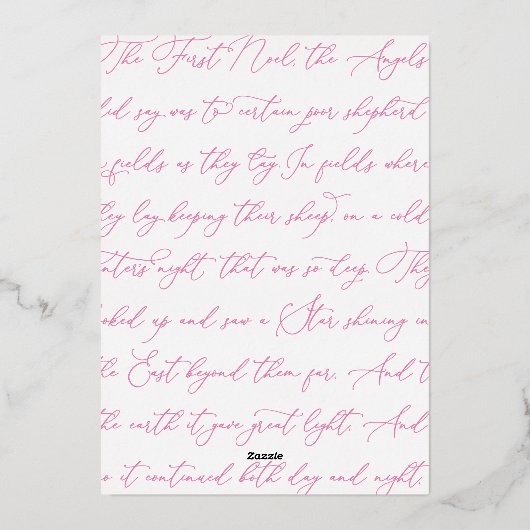 The First Noel, the Angels
did say was to certain poor shepherd
n fields as they lay. In fields where
hey lay keeping their sheep, on a cold
nter's night that was so deep. They
oked up and saw a Star shining in
the East beyond them far. And t
the earth it gave great light. And
Zazzle
o it continued both day and night.